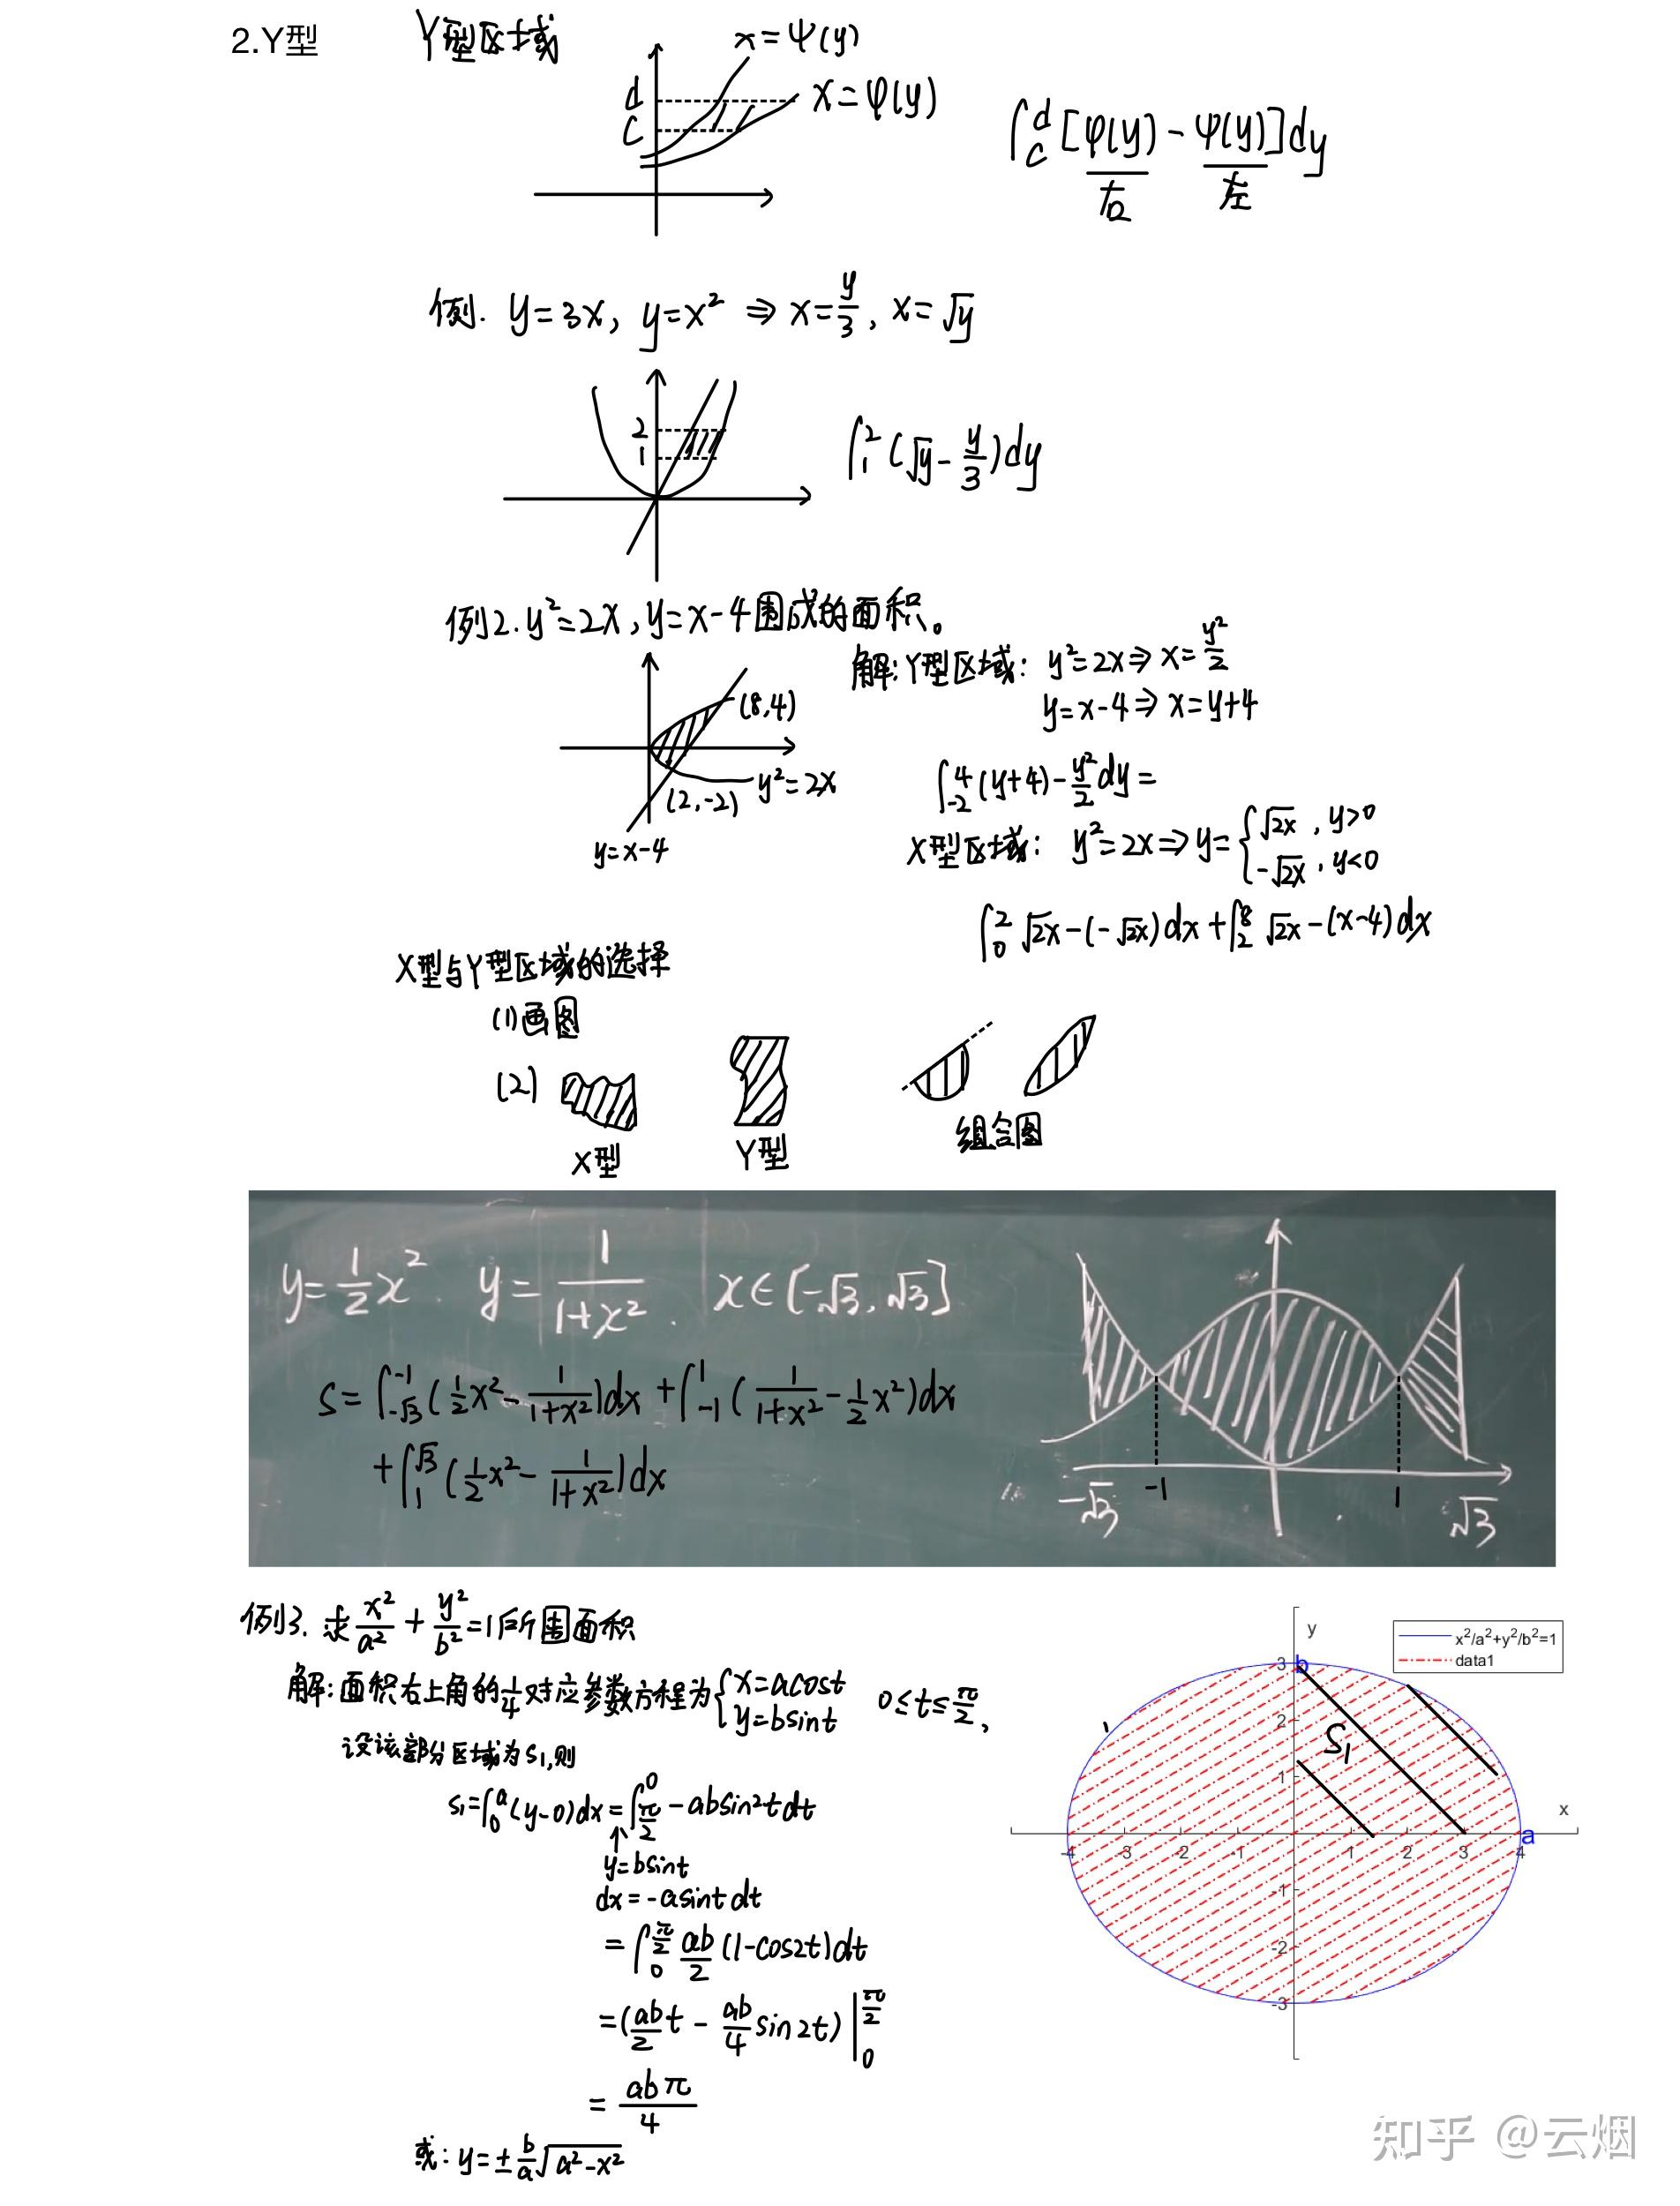 2.Y型 Y型区域
x=ψ(y)
d
x=φ(y)
c
∫_c^d [φ(y)-ψ(y)]dy
右 左
例. y=3x, y=x² ⇒ x=y/3, x=√y
2
1
∫_1^2 (√y-y/3)dy
例2. y²=2x, y=x-4围成的面积。
(8,4)
y²=2x
(2,-2)
y=x-4
解: Y型区域: y²=2x⇒x=y²/2
y=x-4⇒x=y+4
∫_{-2}^4 (y+4)-y²/2 dy=
X型区域: y²=2x⇒y={√2x, y>0
-√2x, y<0
∫_0^2 √2x-(-√2x)dx+∫_2^8 √2x-(x-4)dx
X型与Y型区域的选择
(1)画图
(2)
X型 Y型 组合图
y=1/2 x². y=1/(1+x²). x∈[-√3,√3]
S=∫_{-√3}^{-1}(1/2 x²-1/(1+x²))dx+∫_{-1}^1(1/(1+x²)-1/2 x²)dx
+∫_1^{√3}(1/2 x²-1/(1+x²))dx
-√3 -1 1 √3
例3. 求x²/a²+y²/b²=1所围面积
解:面积右上角的1/4对应参数方程为{x=acost
y=bsint 0≤t≤π/2,
设该部分区域为S₁,则
S₁=∫_0^a(y-0)dx=∫_{π/2}^0-absin²tdt
↑
y=bsint
dx=-asintdt
=∫_0^{π/2} ab/2 (1-cos2t)dt
=(ab/2 t - ab/4 sin2t)|_0^{π/2}
=abπ/4
或: y=±b/a √(a²-x²)
y
x²/a²+y²/b²=1
data1
3 b
2
S₁
1
x
a
-4 -3 -2 -1 1 2 3 4
-1
-2
-3
知乎 @云烟